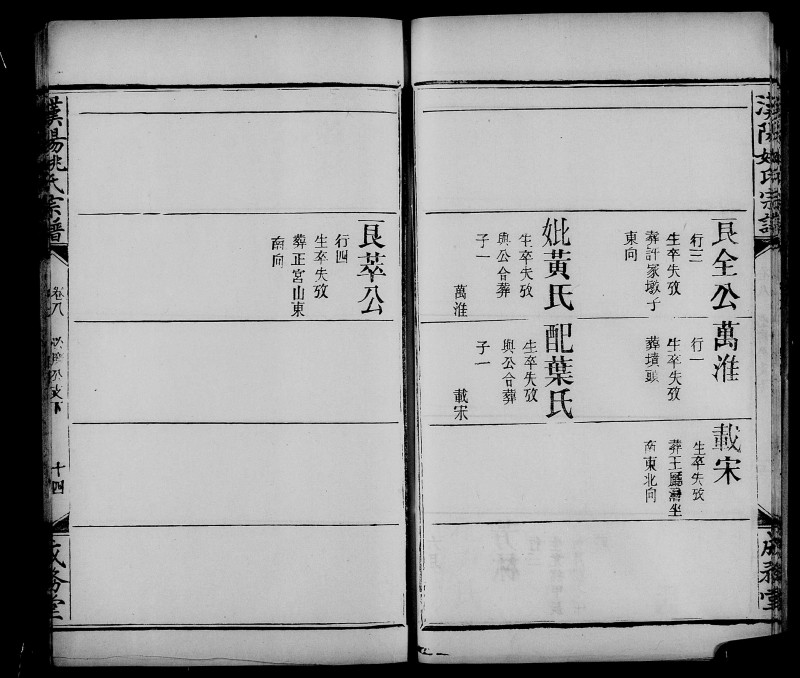 漢陽姚氏宗譜
成務堂
艮全公
行三
生卒失攷
葬許家墩子
東向
妣黃氏
生卒失攷
與公合葬
子一
萬淮
萬淮
行一
生卒失攷
葬墳頭
配葉氏
生卒失攷
與公合葬
子一
載宋
載宋
生卒失攷
葬王屬灣坐
南東北向
艮萃公
行四
生卒失攷
葬正宮山東
南向
漢陽姚氏宗譜
卷八
下
十四
成務堂